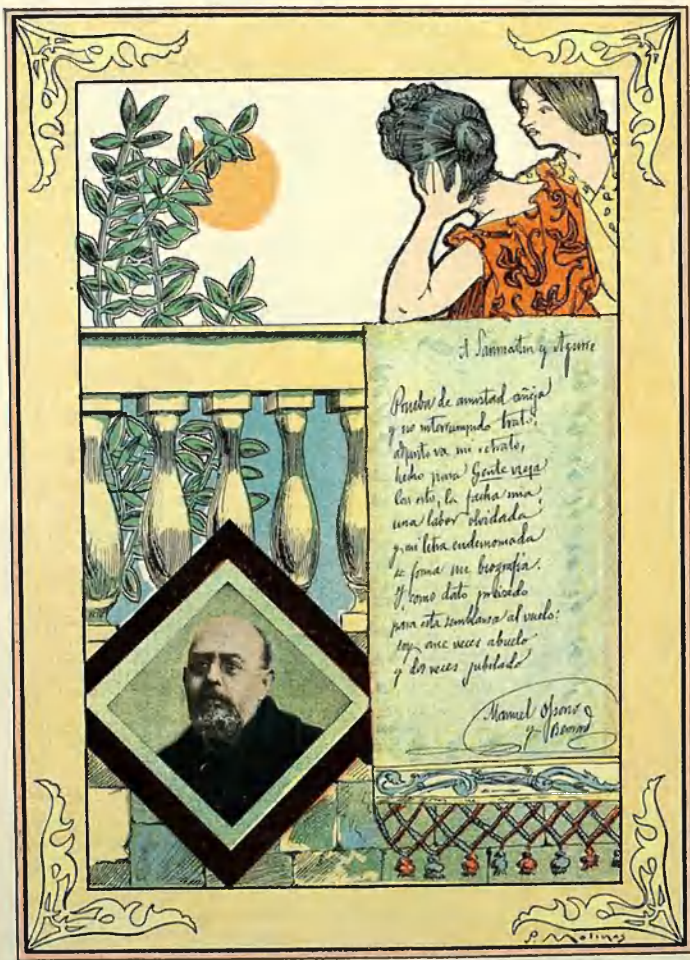 A Sanmartin y Aguirre
Prueba de amistad añeja
y no interrumpido trato,
adjunto va mi retrato,
hecho para Gente vieja
Con esto, la facha mia
una labor olvidada
y mi letra endemoniada
se forma mi biografía.
Y, como dato preciso
para esta semblanza al vuelo:
soy once veces abuelo
y dos veces jubilado
Manuel Ossorio
y Bernard
P. Molinas